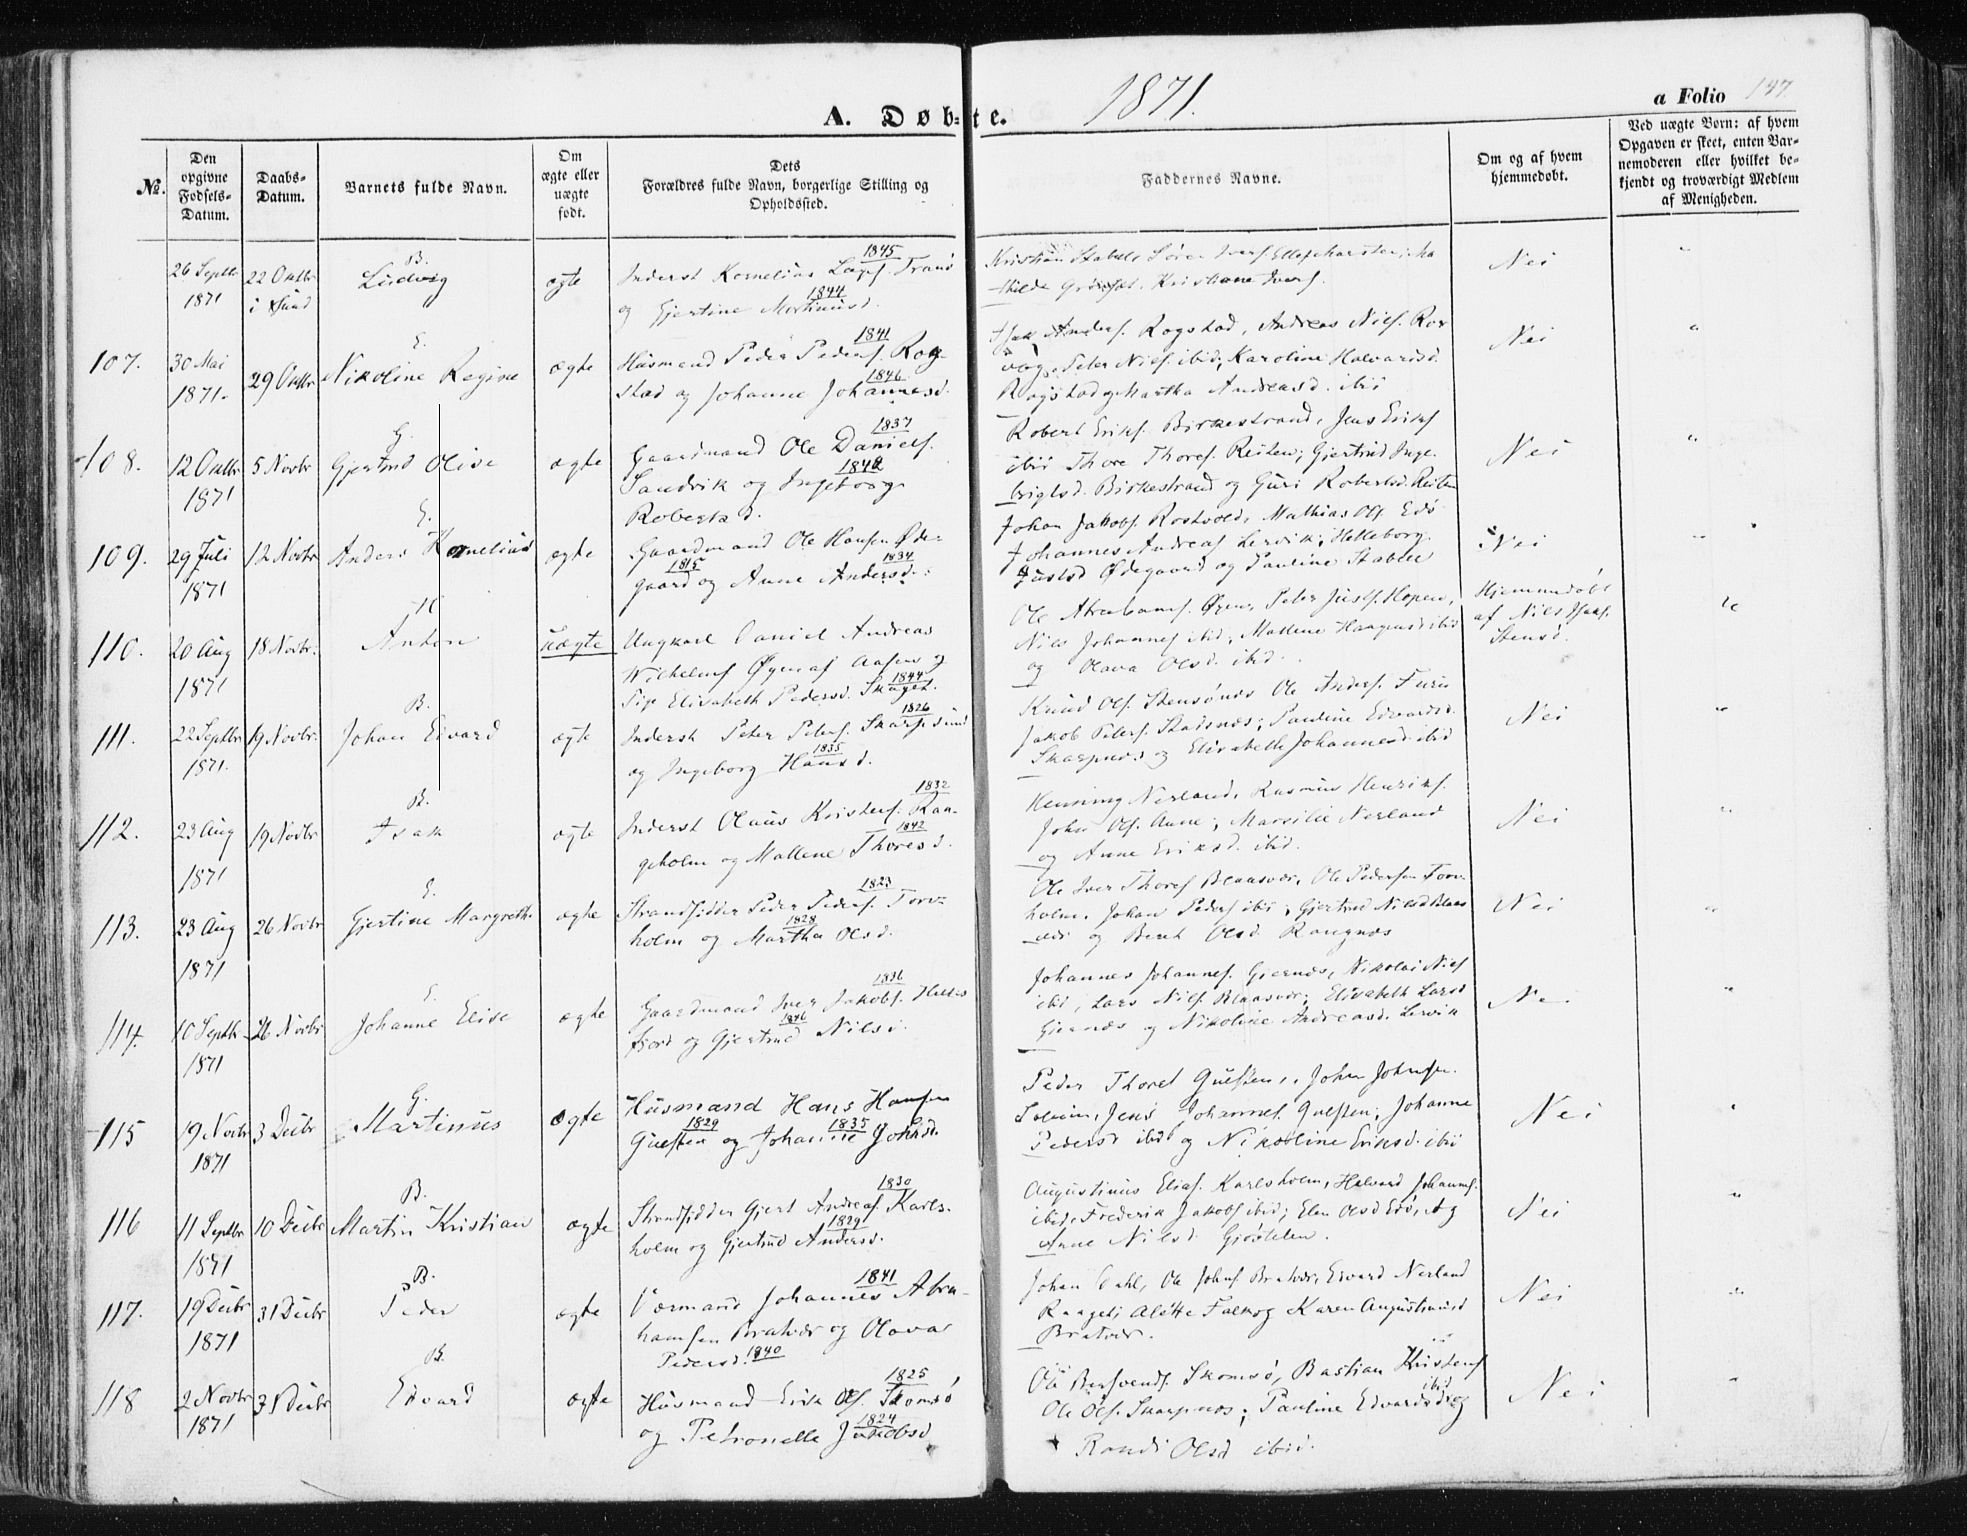 1871.
a Folio 147
A. Døb=te.
No.
Den opgivne Fødsels-Datum.
Daabs-Datum.
Barnets fulde Navn.
Om ægte eller uægte født.
Dets Forældres fulde Navn, borgerlige Stilling og Opholdssted.
Faddernes Navne.
Om og af hvem hjemmedøbt.
Ved uægte Børn: af hvem Opgaven er skeet, enten Barnemoderen eller hvilket bekjendt og troværdigt Medlem af Menigheden.
26 Septbr 1871
22 Octbr
B.
Ludvig
ægte
1845
Inderst Kornelius
1844
og Gjertine Martinusd.
Kristian Stabel, Søren
Kristiane
Nei
107.
30 Mai 1871.
29 Octbr
G.
Nikoline Regine
ægte
1841
Husmand Peder Peders. Rog-
1846
stad og Johanne Johannesd.
Anders. Rogstad, Andreas Niels. Ror
vog, Peter Niels. ibid; Karoline Halvardsd.
Rogstad og Martha Andreasd. ibid
Nei
108.
12 Octbr 1871
5 Novbr
G.
Gjertrud Olise
ægte
1837
Gaardmand Ole Daniels.
1842
Sandvik og Ingeborg
Robertsd.
Robert Eriks. Birkestrand, Jens Eriks
ibid Thore Thores. Reiten; Gjertrud Inge-
brigtsd. Birkestrand og Guri Robertsd. Reiten
Nei
109.
29 Juli 1871
12 Novbr
G.
Anders Kornelius
ægte
Gaardmand Ole Hansen Øde-
1815 1834
gaard og Anne Andersd.
Johan Jakobs. Rostvold, Mathias Ols. Edø
Johannes Andreas Lervik; Helleborg
Ødegaard og Pauline Stabell
Nei
110.
20 Aug 1871
18 Novbr.
H
Anton
uægte
Ungkarl Daniel Andreas
Wilhelms.
1844
Pige Elisabeth Pedersd. Skaget.
Ole Abrahams. Øien, Peter Hopen,
Niels Johannes ibid; Mallene ibid
og Olava Olsd. ibid.
Hjemmedøbt
af Niels
Stensø.
111.
22 Septbr 1871.
19 Novbr.
B.
Johan Edvard
ægte
1826
Inderst Peter Peters. Skarpesund
1835
og Ingeborg Hansd.
Knud Ols. Stensønes Ole Anders. Furu
Jakob Peters. Stadsnes; Pauline Edvardsd.
Skarpnes og Elisabeth Johannesd. ibid
Nei
112.
23 Aug 1871
19 Novbr
B.
Isak
ægte
1832
Inderst Olaus Kristens. Ran-
1842
geholm og Mallene Thoresd.
Henning Nerland, Rasmus Henriks.
John Ols. Aune; Marsilie Nerland
og Anne Eriksd. ibid.
Nei
113.
23 Aug 1871
26 Novbr
G.
Gjertine Margreth.
ægte
1823
Strandsidder Peder Peders. Torv-
1828
holm og Martha Olsd.
Ole Iver Thores Blaasvær, Ole Pedersen Torv-
holm, Johan Peders ibid, Gjertrud Nilsd Blaas
vær og Berit Olsd. Rangnæs
Nei
114.
10 Septbr 1871
26 Novbr
G.
Johanne Elise
ægte
1836
Gaardmand Iver Jakobs.
1846
fjord og Gjertrud Nilsd.
Johannes Johannes. Gjernæs, Nikolai Niels
ibid, Lars Niels. Blaasvær; Elisabeth Larsd
Gjernæs og Nikoline Andreasd. Lervik
Nei
115
19 Novbr 1871
3 Decbr
G.
Martinus
ægte
Husmand Hans Hansen
1829 1835
Gulsten og Johanne Johnsd.
Peder Thores Gulsten, John Johnsen
Jens Johannes. Gulsten; Johanne
Pedersd ibid og Nikoline Eriksd. ibid
Nei
116
11 Septbr 1871
10 Decbr
B.
Martin Kristian
ægte
1830
Strandsidder Gjert Andreas. Karls-
1829
holm og Gjertrud Andersd.
Augustinus Elias. Karlsholm, Halvard Johannes.
ibid, Frederik Jakobs ibid; Elen Olsd Edø, og
Anne Nilsd
Nei
117.
19 Decbr 1871
31 Decbr
B.
Peder
ægte
1841
Værmand Johannes Abra-
hamsen Bratvær og Olava
Pedersd. 1840
Johan Dahl, Ole Johns Bratvær, Edvard Nerland
Alette Falk og Karen Augustinusd
Bratvær.
Nei
118
2 Novbr 1871
31 Decbr
B.
Edvard
ægte
1825
Husmand Erik Ols. Skomsø
1824
og Petronelle Jakobsd
Ole Skomsø, Bastian Kristens
ibid
Ole Ols. Skarpnes; Pauline Edvardsd og
Randi Olsd ibid.
Nei